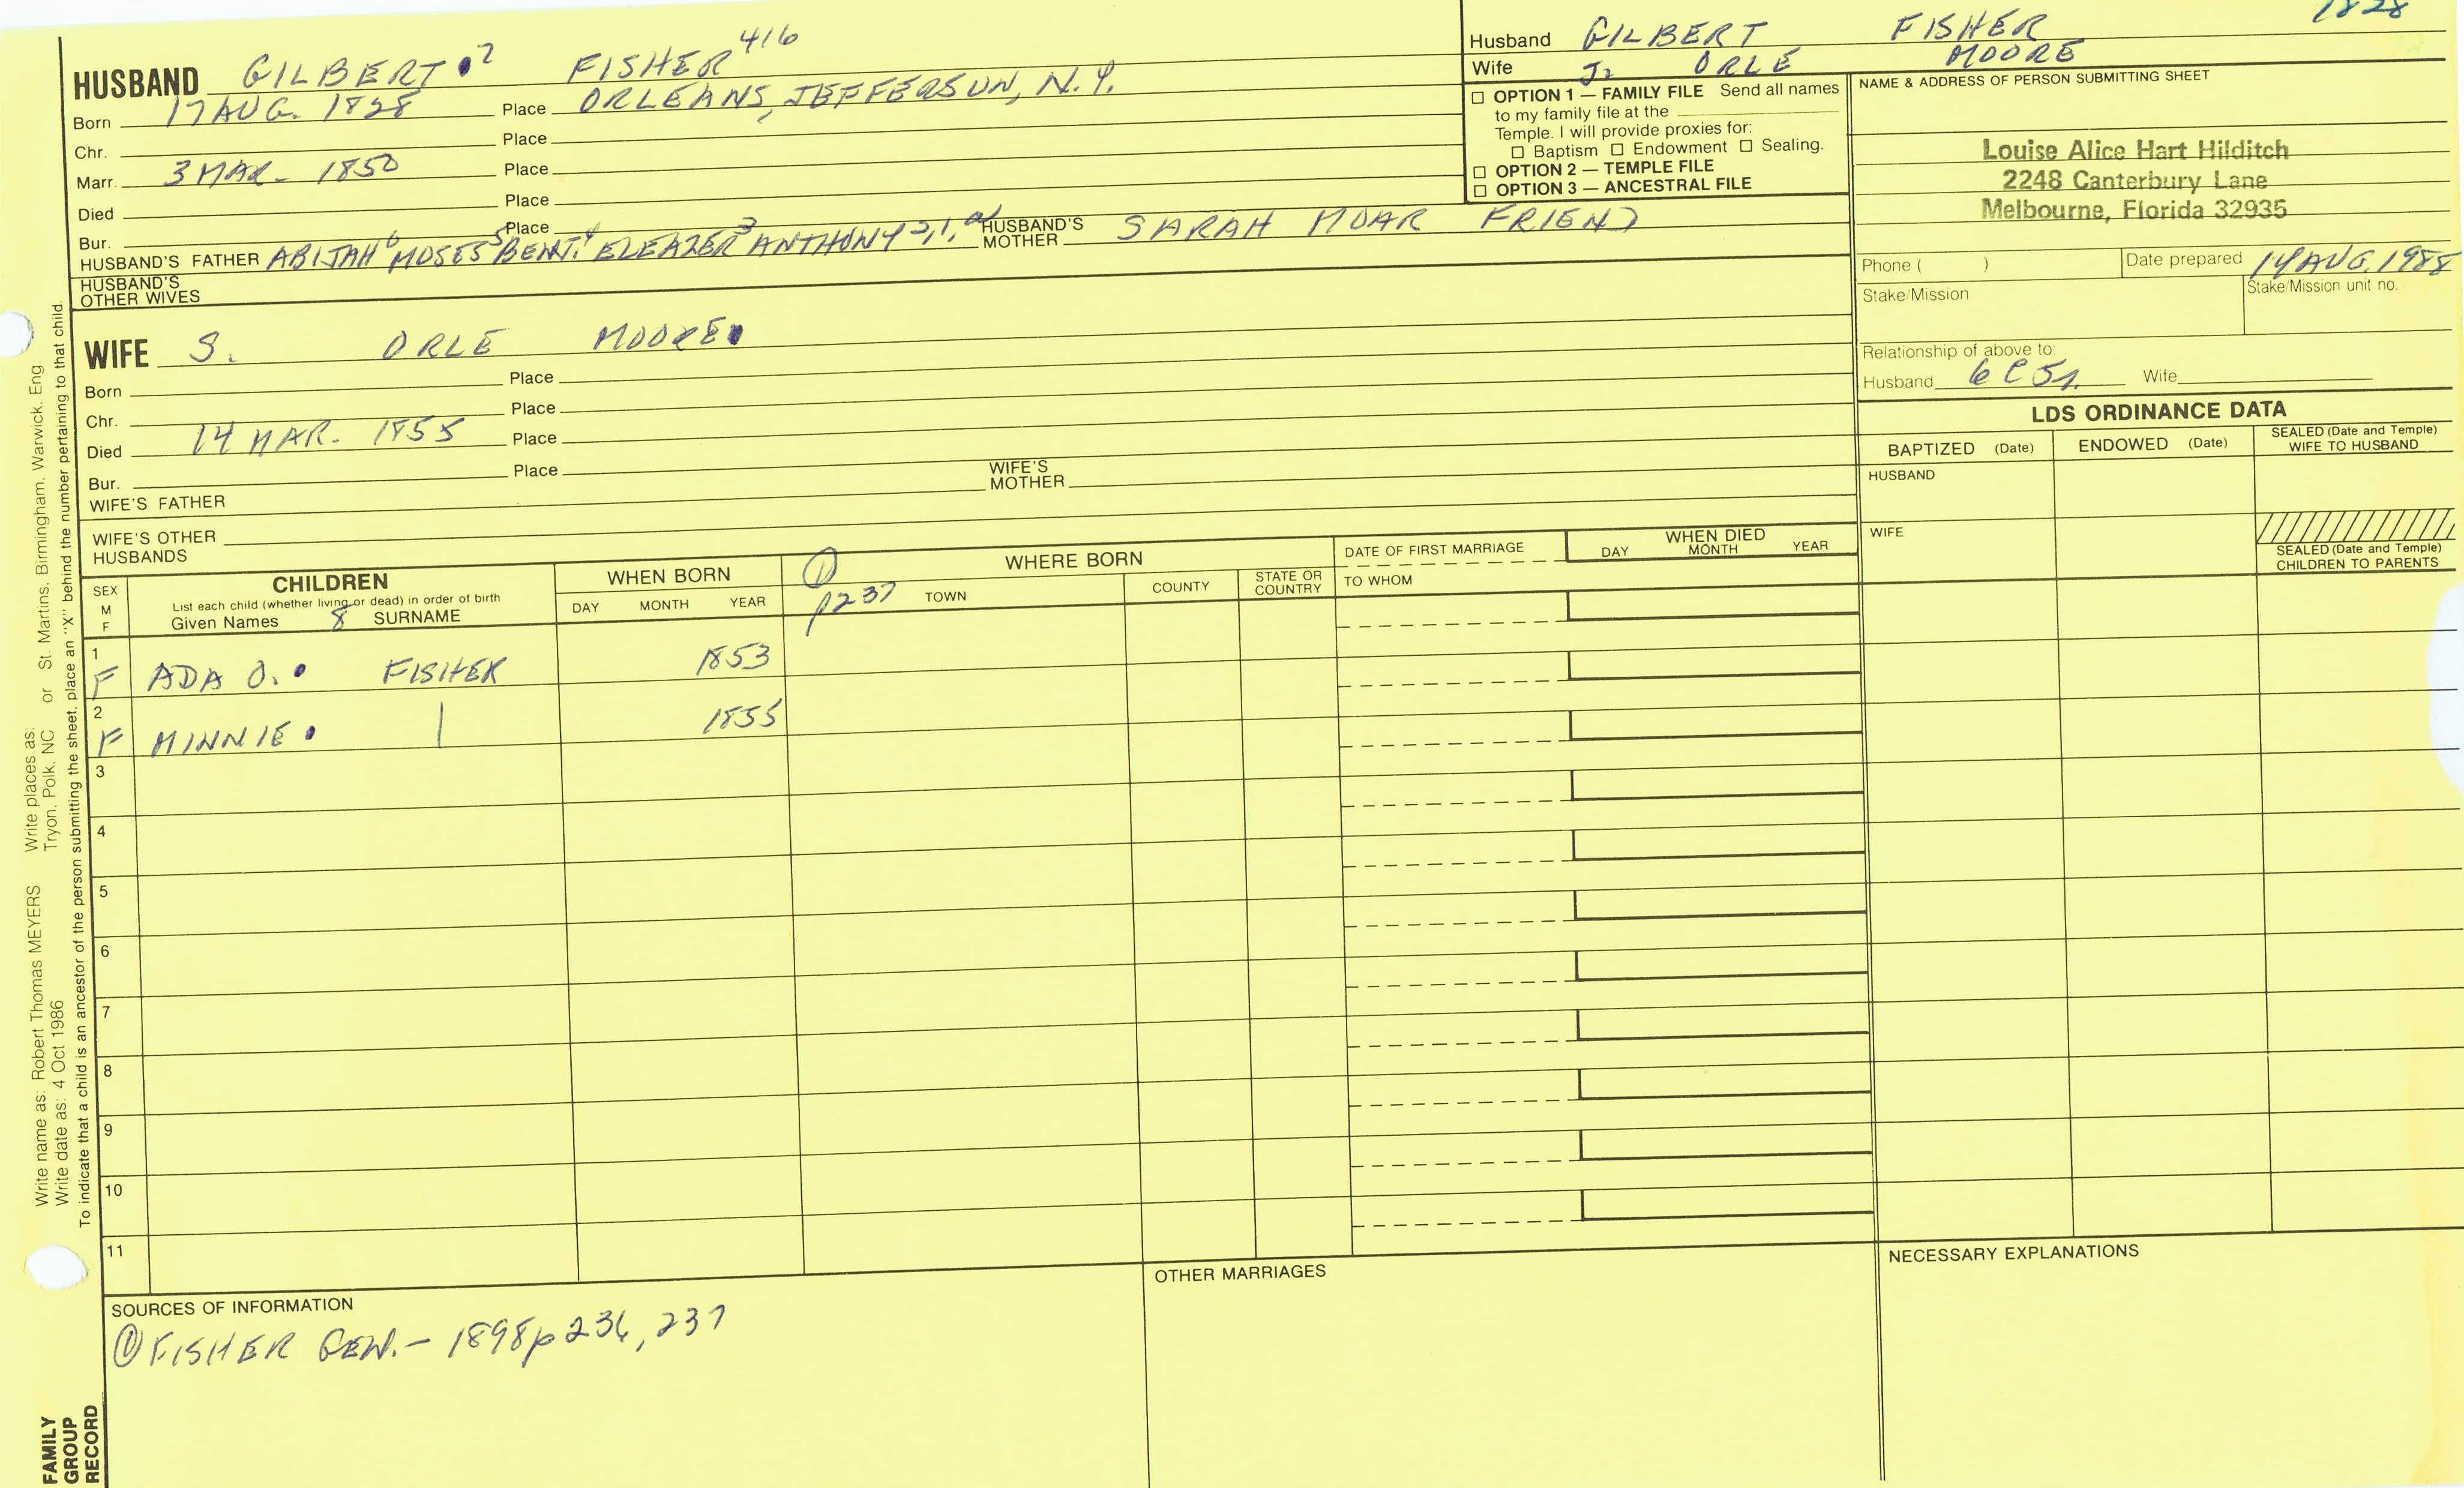 1828
HUSBAND GILBERT 7 FISHER 416
Born 17 AUG. 1828 Place ORLEANS, JEFFERSON, N.Y.
Chr. Place
Marr. 3 MAR- 1850 Place
Died Place
Bur. Place
HUSBAND'S FATHER ABIJAH 6 MOSES 5 BENT. 4 ELEAZER 3 ANTHONY 2,1,a HUSBAND'S MOTHER SARAH MOAR FRIEND
HUSBAND'S OTHER WIVES
Husband GILBERT FISHER
Wife ORLE MOORE
☐ OPTION 1 — FAMILY FILE Send all names
to my family file at the
Temple. I will provide proxies for:
☐ Baptism ☐ Endowment ☐ Sealing.
☐ OPTION 2 — TEMPLE FILE
☐ OPTION 3 — ANCESTRAL FILE
NAME & ADDRESS OF PERSON SUBMITTING SHEET
Louise Alice Hart Hilditch
2248 Canterbury Lane
Melbourne, Florida 32935
Phone ( ) Date prepared 14 AUG. 1988
Stake/Mission Stake/Mission unit no.
Relationship of above to:
Husband 6C5r. Wife
WIFE S. ORLE MOORE
Born Place
Chr. Place
Died 14 MAR- 1855 Place
Bur. Place
WIFE'S FATHER WIFE'S MOTHER
WIFE'S OTHER
HUSBANDS
LDS ORDINANCE DATA
BAPTIZED (Date) ENDOWED (Date) SEALED (Date and Temple) WIFE TO HUSBAND
HUSBAND
WIFE
SEALED (Date and Temple)
CHILDREN TO PARENTS
SEX M F
CHILDREN
List each child (whether living or dead) in order of birth
Given Names 8 SURNAME
WHEN BORN
DAY MONTH YEAR
① WHERE BORN
p237 TOWN COUNTY STATE OR COUNTRY
DATE OF FIRST MARRIAGE
TO WHOM
WHEN DIED
DAY MONTH YEAR
1 F ADA O. FISHER 1853
2 F MINNIE. | 1855
3
4
5
6
7
8
9
10
11
SOURCES OF INFORMATION
① FISHER GEN.- 1898 p 236, 237
OTHER MARRIAGES
NECESSARY EXPLANATIONS
Write name as: Robert Thomas MEYERS Write places as:
Write date as: 4 Oct 1986 Tryon, Polk, NC or St. Martins, Birmingham, Warwick, Eng.
To indicate that a child is an ancestor of the person submitting the sheet, place an "X" behind the number pertaining to that child.
FAMILY
GROUP
RECORD